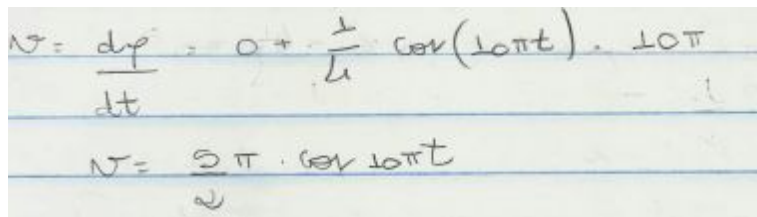 v = dp/dt = 0 + 1/4 cos(10πt) . 10π
v = 5π/2 . cos 10πt